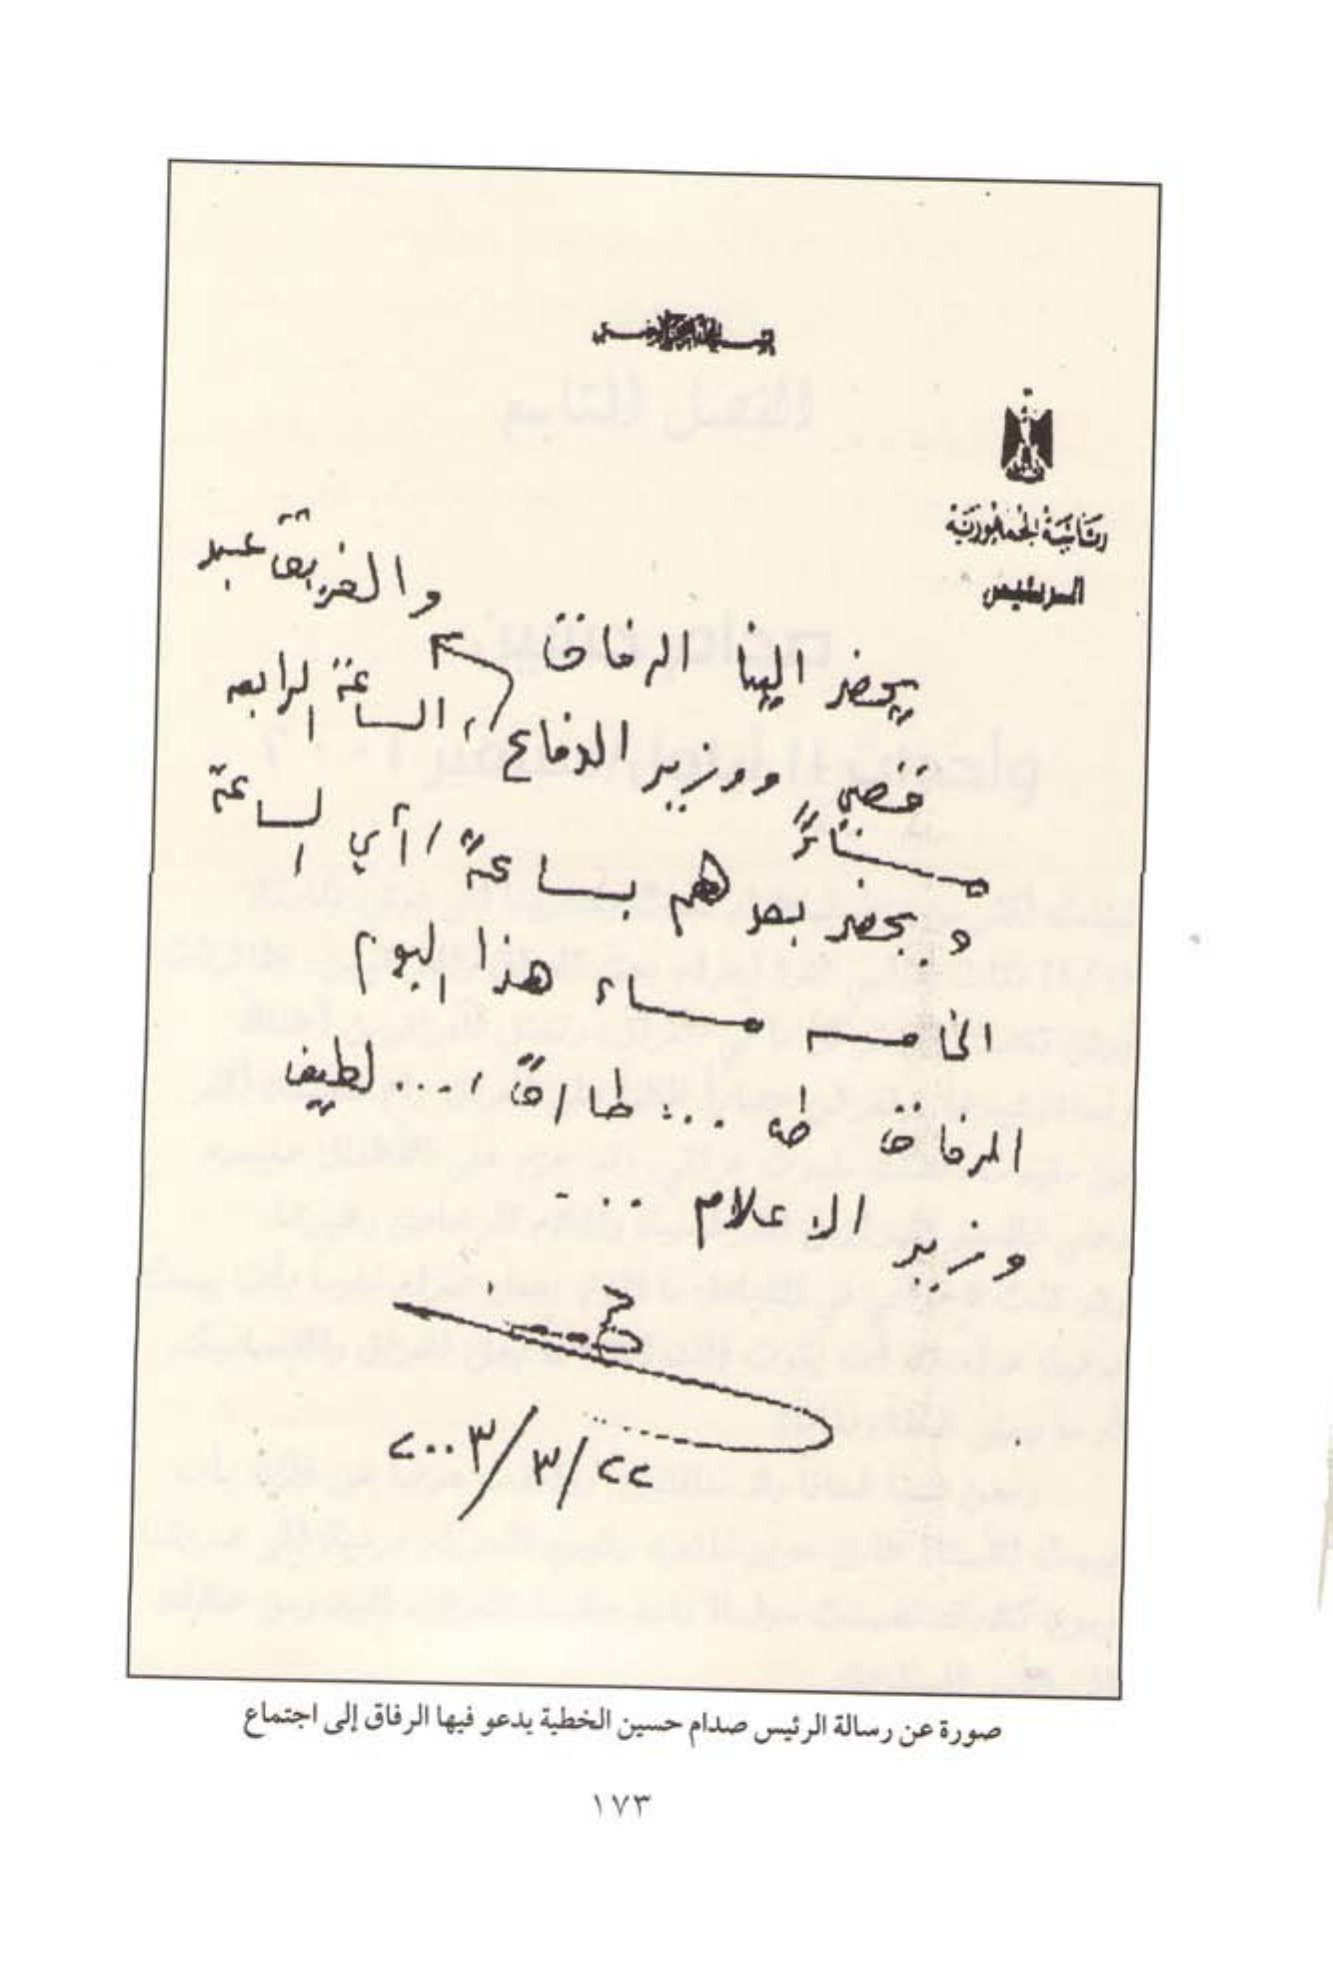 بسم الله الرحمن الرحيم
رئاسة الجمهورية
الرئيس
والفريق عبد
يحضر الينا الرفاق
قصي ووزير الدفاع، الساعة الرابعه
مساءً
ويحضر بعدهم بساعة، أي الساعة
الخامسه مساء هذا اليوم
الرفاق طه ... طارق، ... لطيف
وزير الاعلام ...
٢٠٠٣/٣/٢٢
صورة عن رسالة الرئيس صدام حسين الخطية يدعو فيها الرفاق إلى اجتماع
١٧٣